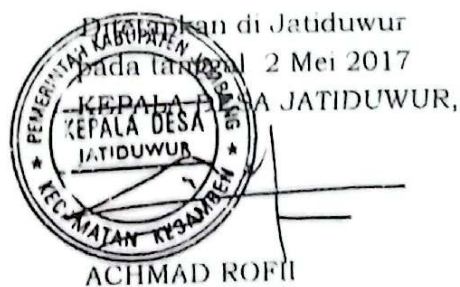 Ditetapkan di Jatiduwur
pada tanggal 2 Mei 2017
KEPALA DESA JATIDUWUR,
PEMERINTAH KABUPATEN JOMBANG
KEPALA DESA
JATIDUWUR
KECAMATAN KESAMBEN
ACHMAD ROFII